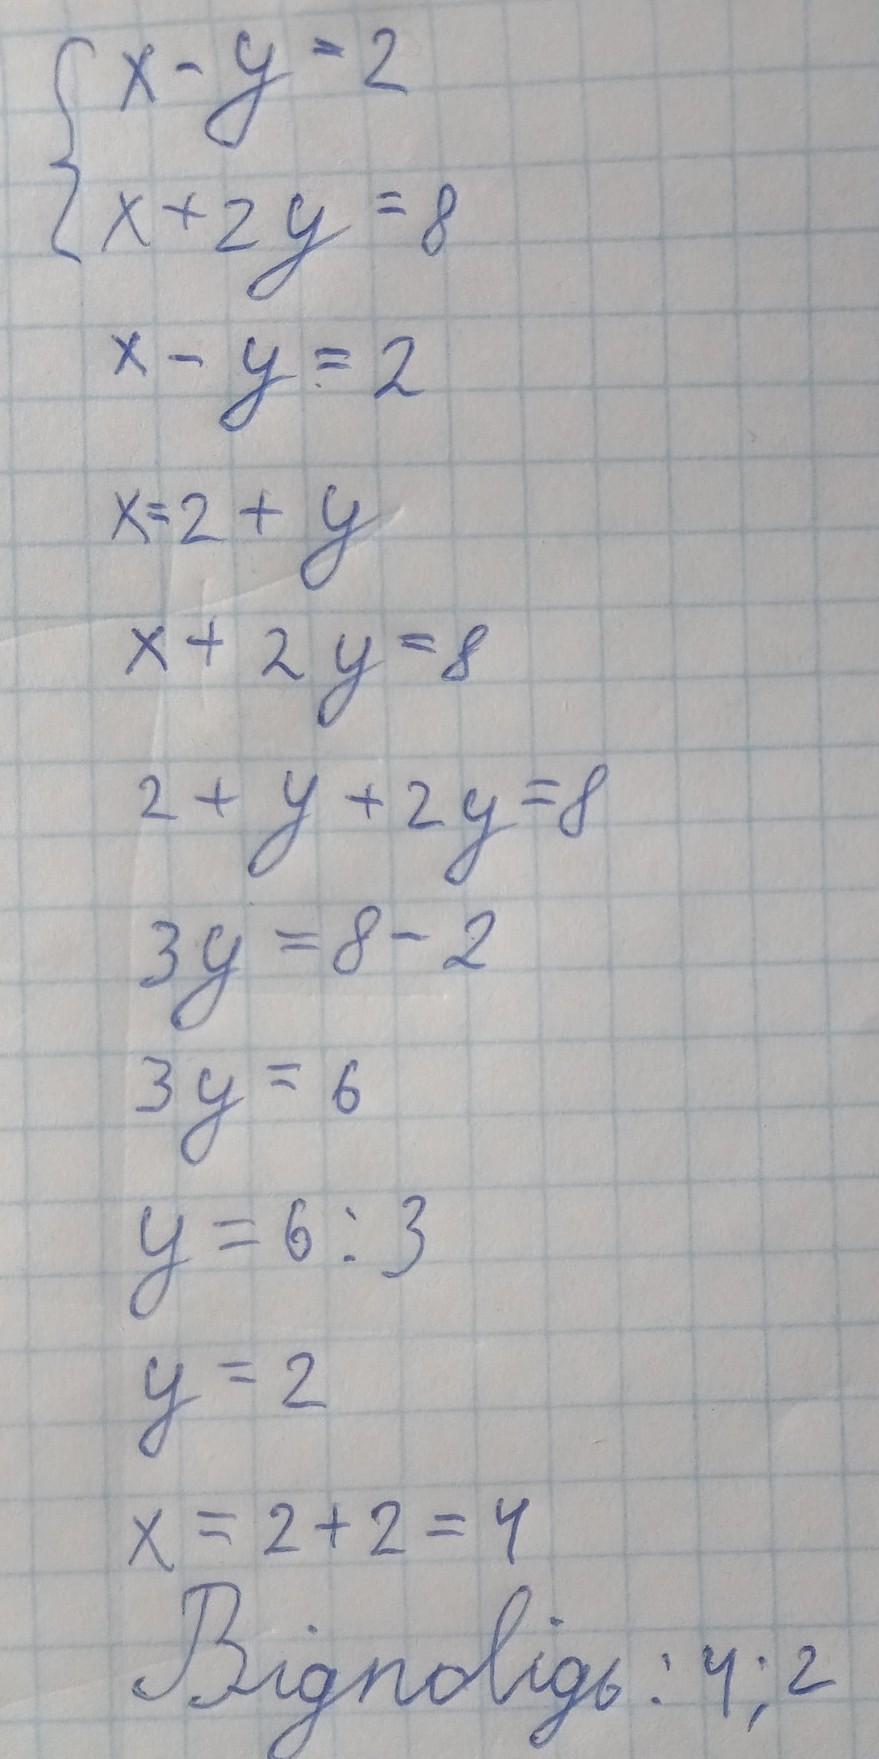 { x - y = 2
x + 2y = 8
x - y = 2
x = 2 + y
x + 2y = 8
2 + y + 2y = 8
3y = 8 - 2
3y = 6
y = 6 : 3
y = 2
x = 2 + 2 = 4
Відповідь : 4 ; 2